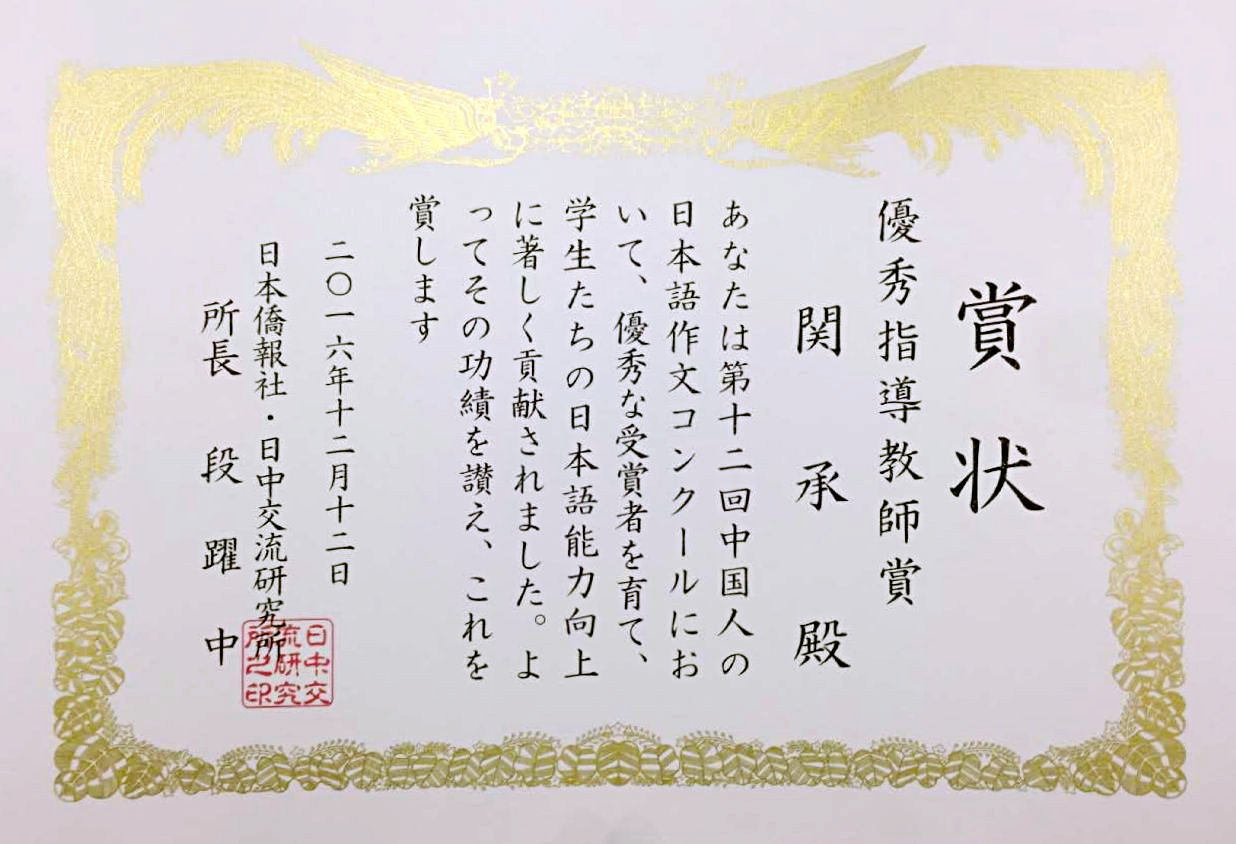 賞状
優秀指導教師賞
関承殿
あなたは第十二回中国人の
日本語作文コンクールにお
いて、優秀な受賞者を育て、
学生たちの日本語能力向上
に著しく貢献されました。よ
ってその功績を讃え、これを
賞します
二〇一六年十二月十二日
日本僑報社・日中交流研究所
所長 段躍中
日中交
流研究
所之印